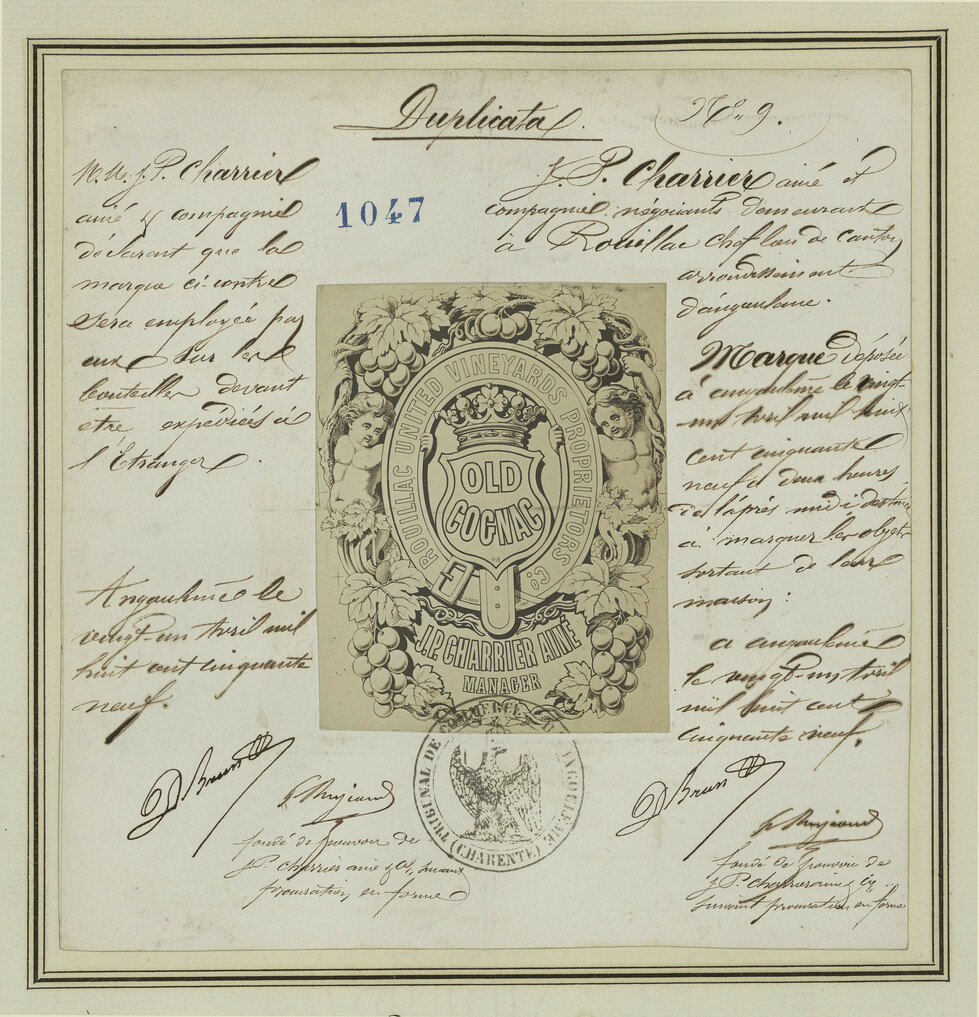 Duplicata
N.o 9.
M.M. J. P. Charrier
ainé & compagnie
déclarent que la
marque ci-contre
sera employée par
eux sur les
bouteilles devant
être expédiées à
l'Etranger.
Angoulême le
vingt-un Avril mil
huit cent cinquante
neuf.
1047
J. P. Charrier ainé et
compagnie négociants demeurant
à Rouillac chef lieu de canton
arrondissement
d'angoulême.
Marque déposée
à angoulême le vingt-
un Avril mil huit
cent cinquante
neuf à deux heures
de l'après midi destinée
à marquer les objets
sortant de leur
maison;
a angoulême
le vingt-un Avril
mil huit cent
cinquante neuf.
ROUILLAC UNITED VINEYARDS PROPRIETORS Co
OLD
COGNAC
J.P. CHARRIER AINÉ
MANAGER
TRIBUNAL DE COMMERCE D'ANGOULEME
(CHARENTE)
D Brun
fondé de pouvoir de
J P. Charrier ainé & Cie, suivant
procuration en forme
D Brun
fondé de pouvoir de
J P. Charrier ainé & Cie
suivant procuration en forme